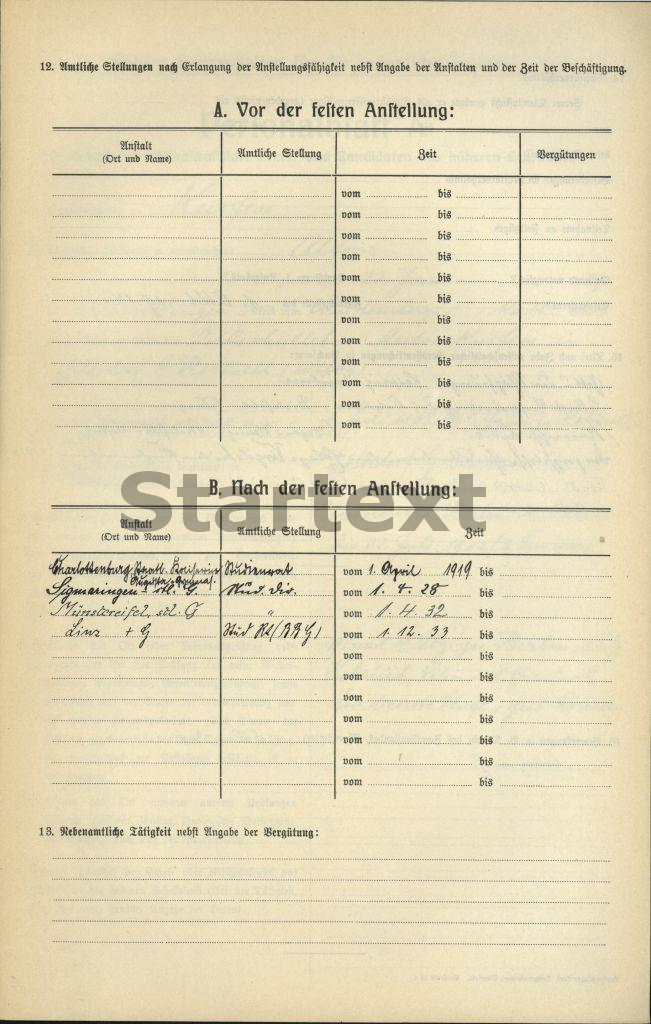 12. Amtliche Stellungen nach Erlangung der Anstellungsfähigkeit nebst Angabe der Anstalten und der Zeit der Beschäftigung.
A. Vor der festen Anstellung:
Anstalt
(Ort und Name)
Amtliche Stellung
Zeit
Vergütungen
vom bis
vom bis
vom bis
vom bis
vom bis
vom bis
vom bis
vom bis
vom bis
vom bis
vom bis
vom bis
B. Nach der festen Anstellung:
Startext
Anstalt
(Ort und Name)
Amtliche Stellung
Zeit
Charlottenburg, Staatl. Kaiserin Studienrat vom 1. April 1919 bis
Augusta-Gymnas.
Sigmaringen stl. G. Stud. Dir. vom 1. 4. 28 bis
Münstereifel, stl. G " vom 1. 4. 32 bis
Linz + G Stud Rt vom 1. 12. 33 bis
vom bis
vom bis
vom bis
vom bis
vom bis
vom bis
vom bis
13. Nebenamtliche Tätigkeit nebst Angabe der Vergütung: